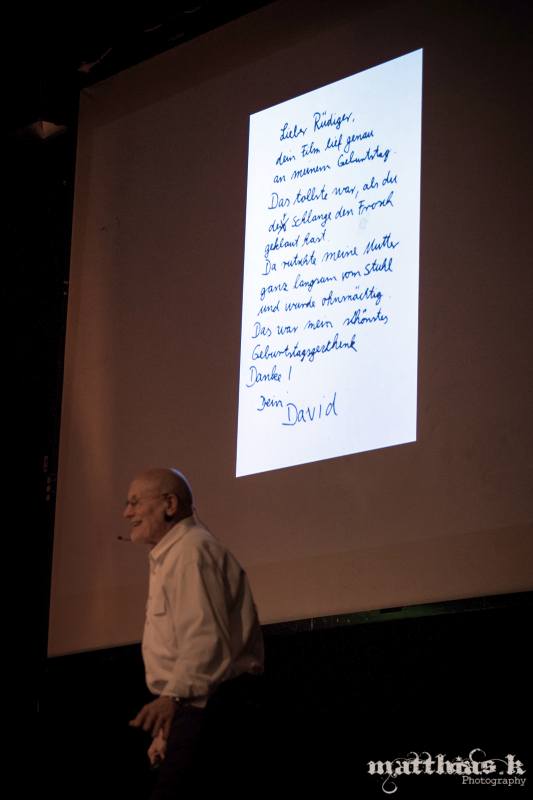 Lieber Rüdiger,
dein Film lief genau
an meinem Geburtstag.
Das tollste war, als du
der Schlange den Frosch
geklaut hast.
Da rutschte meine Mutter
ganz langsam vom Stuhl
und wurde ohnmächtig.
Das war mein schönstes
Geburtstagsgeschenk
Danke!
Dein
David
matthias.k
Photography